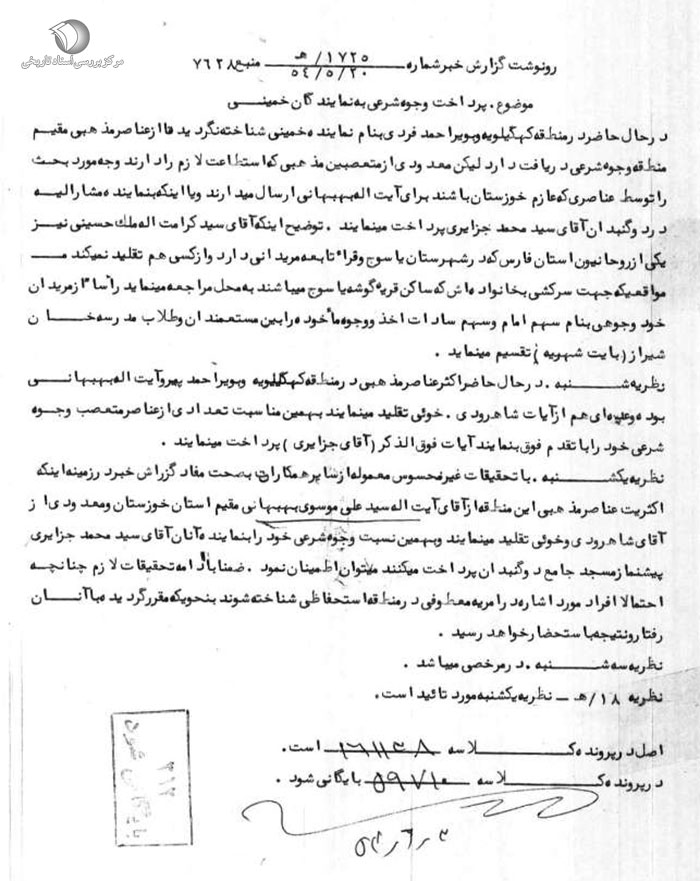 مرکز بررسی اسناد تاریخی
رونوشت گزارش خبر شماره ۱۷۲۵/هـ ۵۴/۵/۲۰ منبع ۷۶۲۸
موضوع . پرداخت وجوه شرعی به نمایندگان خمینی
در حال حاضر در منطقه کهگیلویه و بویر احمد فردی بنام نماینده خمینی شناخته نگردیده فا از عناصر مذهبی مقیم
منطقه وجوه شرعی دریافت دارد لیکن معدودی از متعصبین مذهبی که استطاعت لازم را دارند وجه مورد بحث
را توسط عناصری که عازم خوزستان باشند برای آیت اله بهبهانی ارسال میدارند و یا اینکه بنماینده مشارالیه
در دوگنبدان آقای سید محمد جزایری پرداخت مینمایند . توضیح اینکه آقای سید کرامت اله ملك حسینی نیز
یکی از روحانیون استان فارس که در شهرستان یاسوج و قراء تابعه مریدانی دارد و از کسی هم تقلید نمیکند
مواقعیکه جهت سرکشی بخانواده اش که ساکن قریه گوشه یاسوج میباشند به محل مراجعه مینماید رأسا از مریدان
خود وجوهی بنام سهم امام و سهم سادات اخذ و وجوه مأخوذه را بین مستمندان و طلاب مدرسه خان
شیراز (بابت شهریه) تقسیم مینماید .
نظریه شنبه . در حال حاضر اکثر عناصر مذهبی در منطقه کهگیلویه و بویر احمد پیرو آیت اله بهبهانی
بوده و عده ای هم از آیات شاهرودی . خوئی تقلید مینمایند بهمین مناسبت تعدادی از عناصر متعصب وجوه
شرعی خود را با تقدم فوق بنمایند آیات فوق الذکر (آقای جزایری) پرداخت مینمایند .
نظریه یکشنبه . با تحقیقات غیر محسوس معموله از سایر همکاران بصحت مفاد گزارش خبر در زمینه اینکه
اکثریت عناصر مذهبی این منطقه از آقای آیت اله سید علی موسوی بهبهانی مقیم استان خوزستان و معدودی از
آقای شاهرودی و خوئی تقلید مینمایند و بهمین نسبت وجوه شرعی خود را بنماینده آنان آقای سید محمد جزایری
پیشنماز مسجد جامع دوگنبدان پرداخت میکنند میتوان اطمینان نمود . ضمنا با ادامه تحقیقات لازم چنانچه
احتمالا افراد مورد اشاره در امریه معطوفی در منطقه استحفاظی شناخته شوند بنحویکه مقرر گردیده با آنان
رفتار و نتیجه باستحضار خواهد رسید .
نظریه سه شنبه . در مرخصی میباشد .
نظریه ۱۸/هـ - نظریه یکشنبه مورد تائید است.
اصل در پرونده کلاسه ۱۶۱۱۴۸ است .
در پرونده کلاسه ۵۹۷۱۰ بایگانی شود .
۳۱۲
بایگانی شود
۵۴/۶/۳